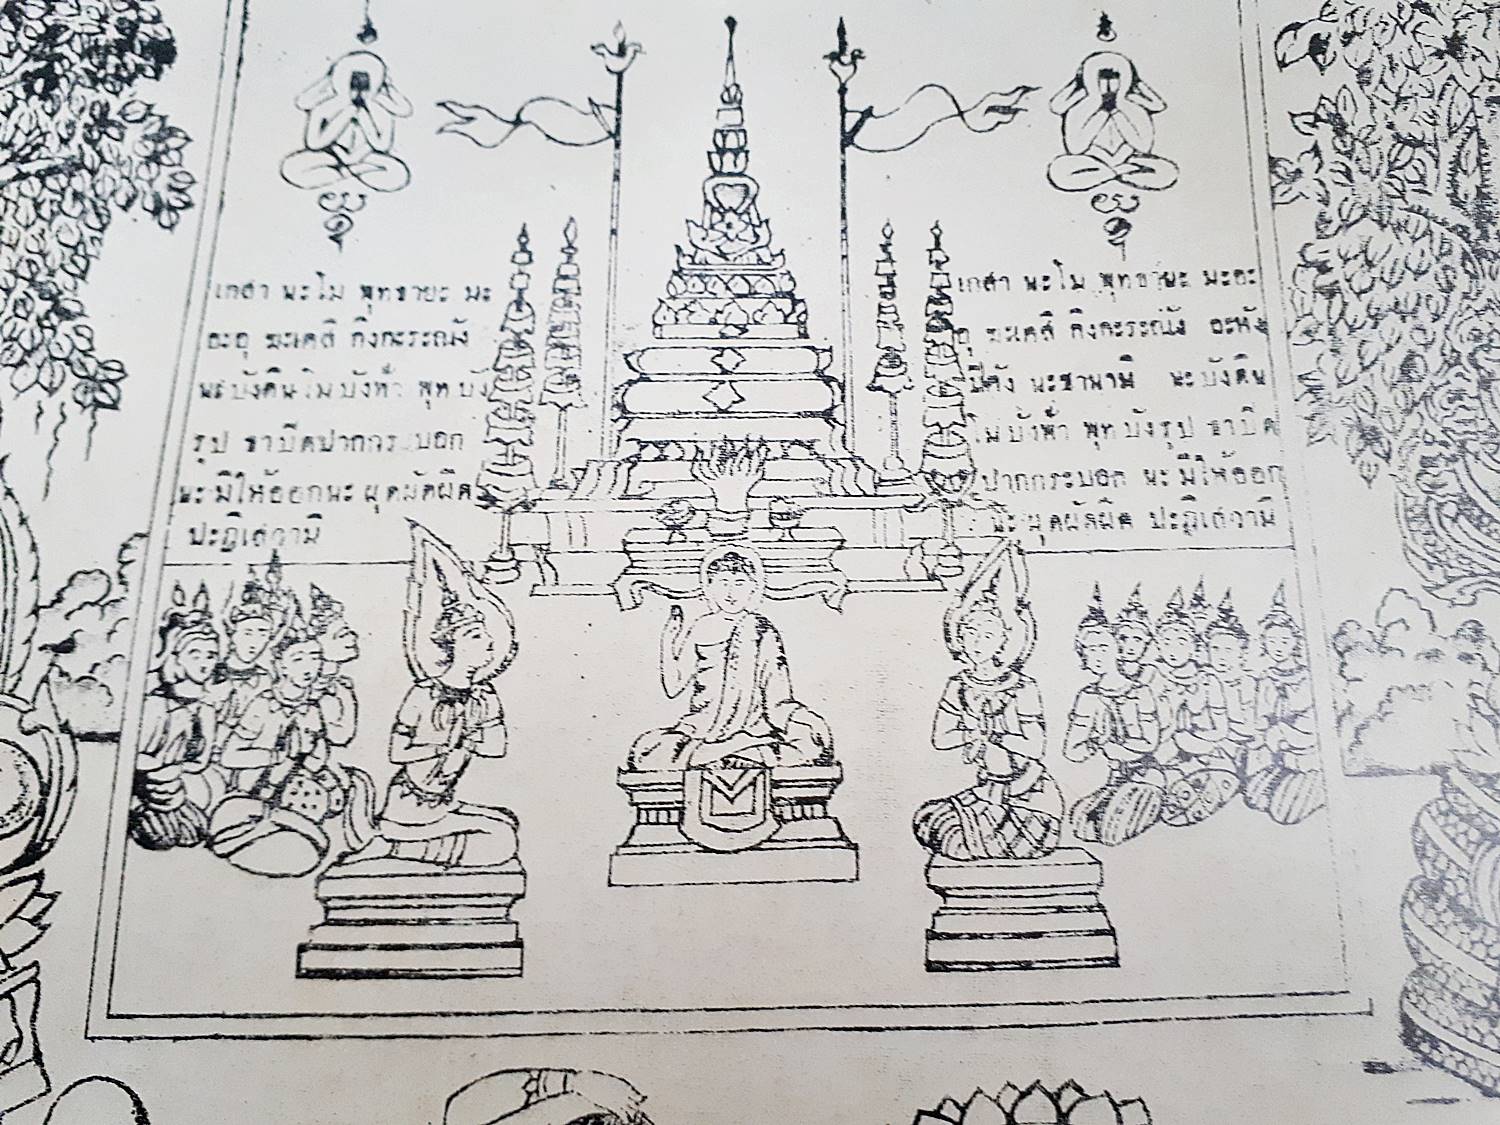 เกสา นะโม พุทธายะ นะ
อะอุ ฆะเตสิ กิงกะระณัง
นะบังดินโมบังฟ้า พุทบัง
รูป ธาปิดปากกระบอก
นะมิให้ออกนะ ผุดผัดผิด
ปะฏิเสวามิ
เกสา นะโม พุทธายะ นะอะ
อุ ฆะเตสิ กิงกะระณัง อะหัง
ปิตัง นะชานามิ นะบังดิน
โมบังฟ้า พุทบังรูป ธาปิด
ปากกระบอก นะมิให้ออก
นะ ผุดผัดผิด ปะฏิเสวามิ